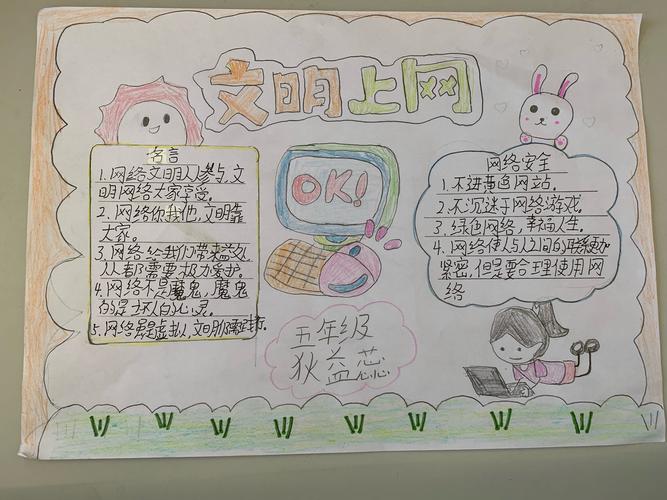 文明上网
名言
1.网络文明人人参与,文
明网络大家享受。
2.网络你我他,文明靠
大家。
3.网络给我们带来益处
人人都需要极力爱护。
4.网络不是魔鬼,魔鬼
的是坏人的心灵。
5.网络虽是虚拟,文明
OK!
五年级
狄益芯
网络安全
1.不进黄色网站。
2.不沉迷于网络游戏。
3.绿色网络,幸福人生。
4.网络使人与人之间的联系更加
紧密,但是要合理使用网
络